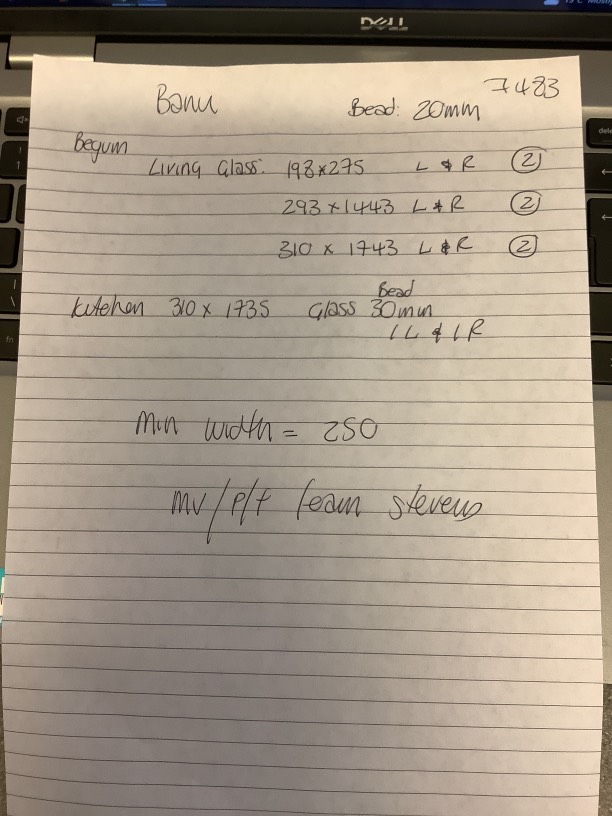 DELL
7483
Banu Bead: 20mm
Begum
Living Glass: 198x275 L & R 2
293 x 1443 L & R 2
310 x 1743 L & R 2
Bead
Kitchen 310 x 1735 Glass 30mm
1 L & 1 R
Min width = 250
MV/P/t team stevens